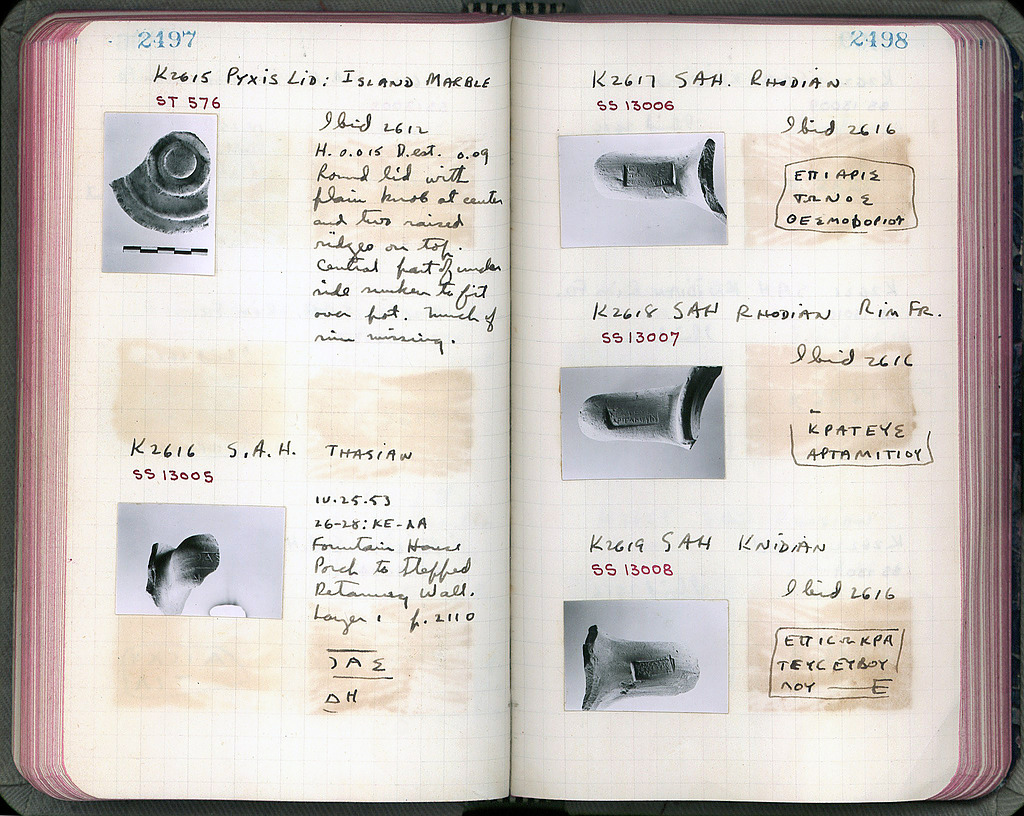 2497
K2615 PYXIS LID: ISLAND MARBLE
ST 576
Ibid 2612
H. 0.015 D.est. 0.09
Round lid with
plain knob at center
and two raised
ridges on top.
Central part of under
side sunken to fit
over pot. Much of
rim missing.
K2616 S.A.H. THASIAN
SS 13005
IV.25.53
26-28: KE-ΛA
Fountain House
Porch to Stepped
Retaining Wall.
Layer 1 p. 2110
ΑΣ
ΔΗ
2498
K2617 SAH. RHODIAN
SS 13006
Ibid 2616
ΕΠΙ ΑΡΙΣ
ΤΩΝΟΣ
ΘΕΣΜΟΦΟΡΙΟΥ
K2618 SAH RHODIAN RIM FR.
SS 13007
Ibid 2616
ΚΡΑΤΕΥΣ
ΑΡΤΑΜΙΤΙΟΥ
K2619 SAH KNIDIAN
SS 13008
Ibid 2616
ΕΠΙCωΚΡΑ
ΤΕΥCΕΥΒΟΥ
ΛΟΥ — E